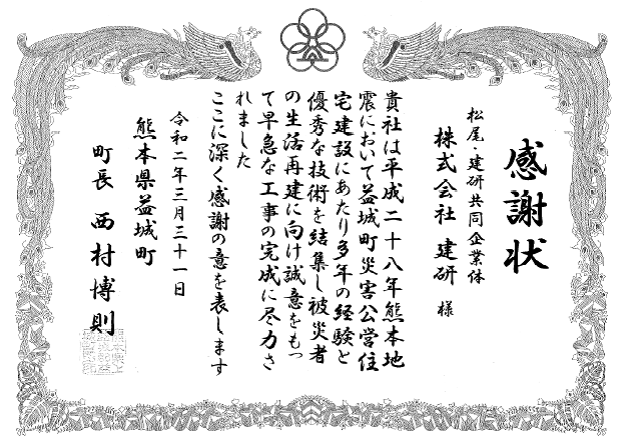 感謝状
松尾・建研共同企業体
株式会社 建研 様
貴社は平成二十八年熊本地
震において益城町災害公営住
宅建設にあたり多年の経験と
優秀な技術を結集し被災者
の生活再建に向け誠意をもっ
て早急な工事の完成に尽力さ
れました
ここに深く感謝の意を表します
令和二年三月三十一日
熊本県益城町
町長 西村博則